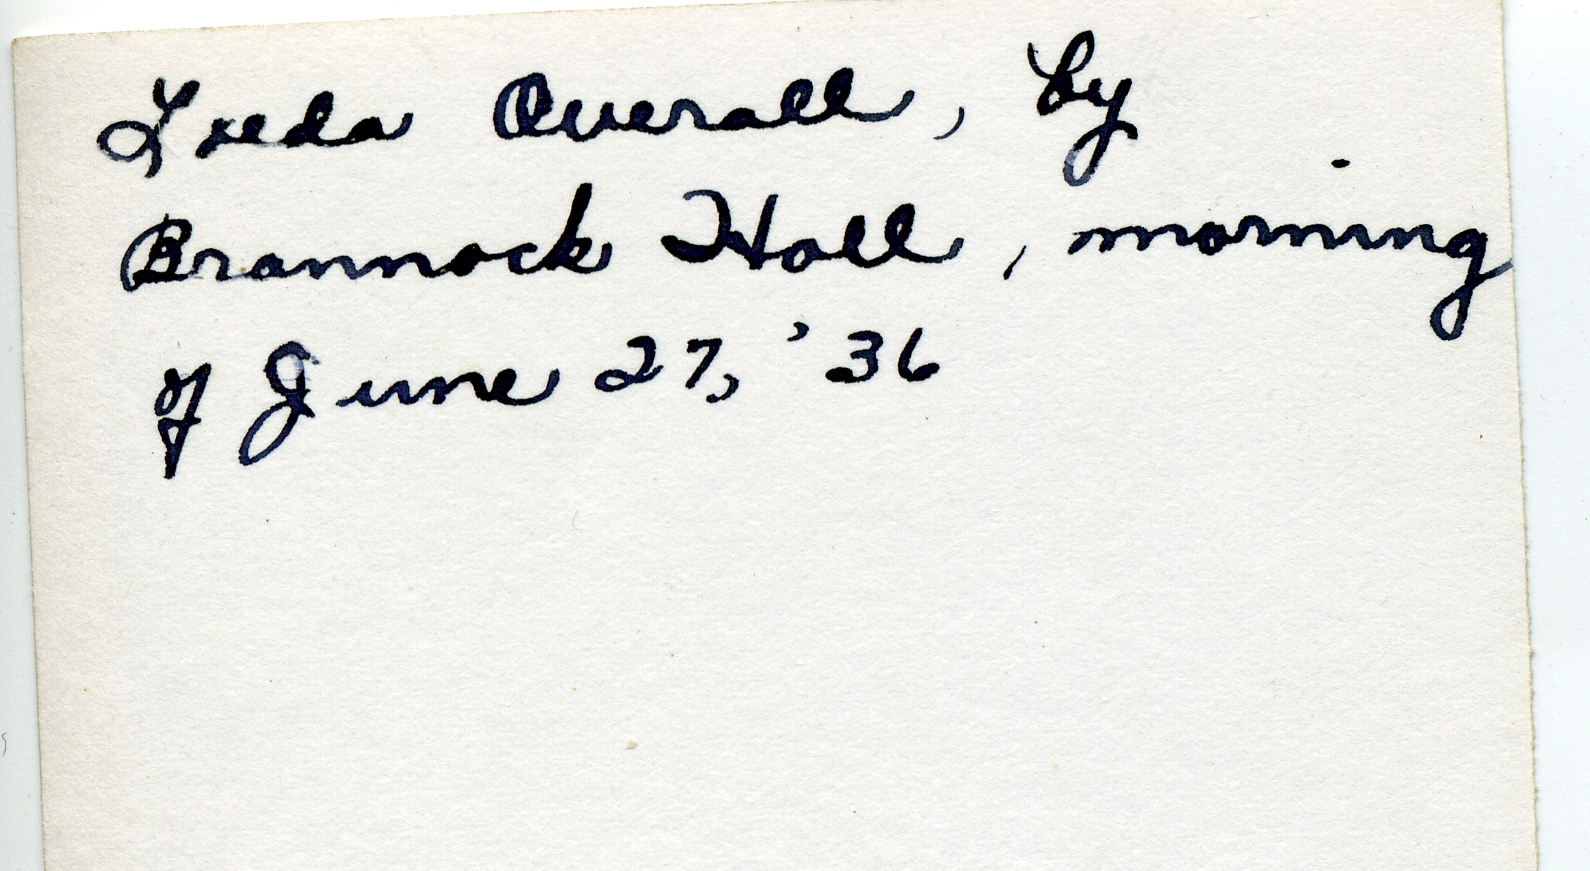 Overall, by
Brannock Hall, morning
of June 27, '36